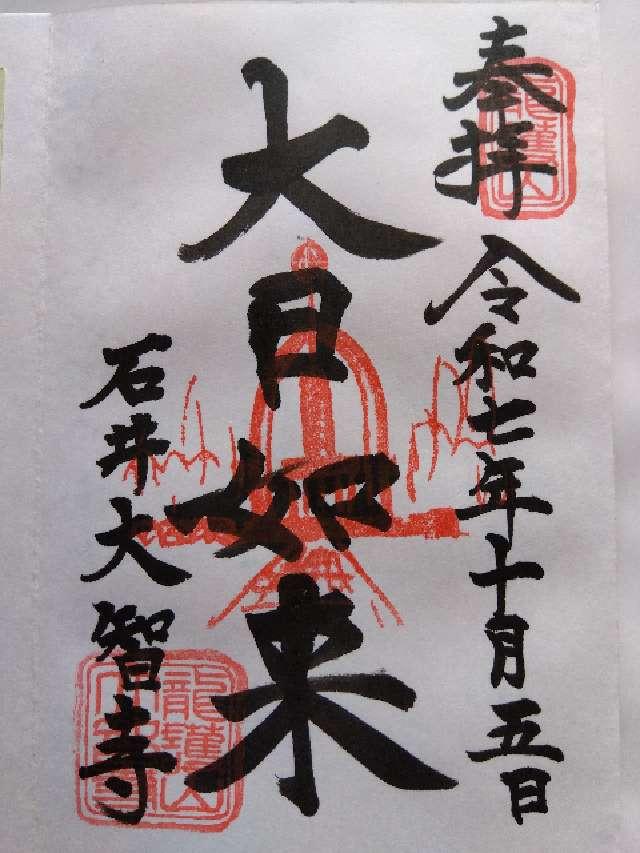 奉拝
令和七年十月五日
大日如来
石井大智寺
龍護山